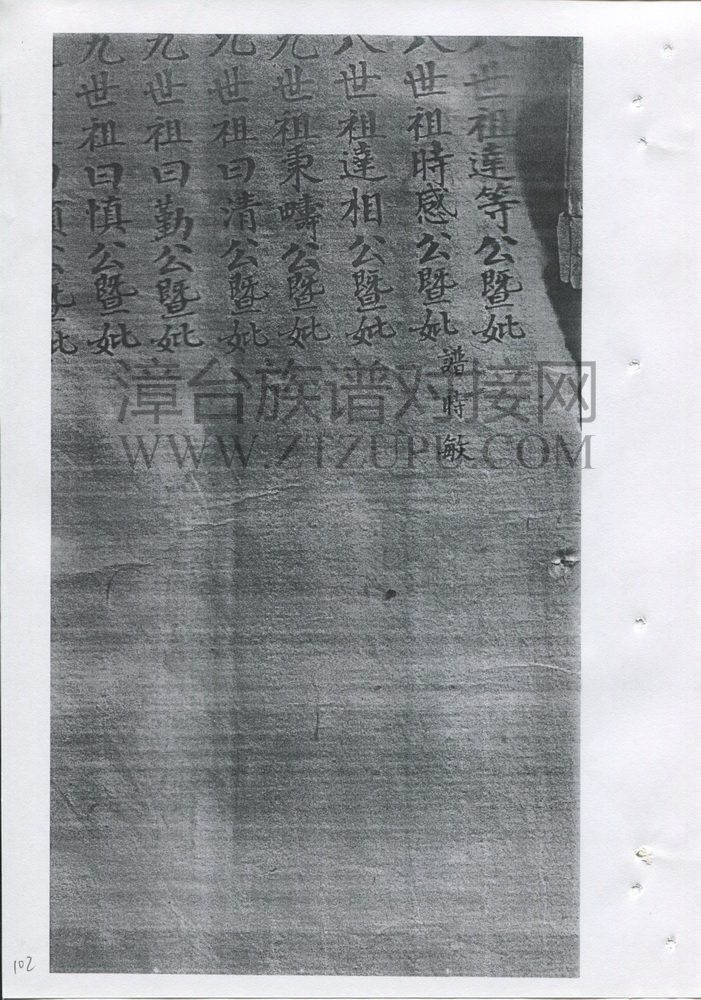 八世祖達等公暨妣
八世祖時感公暨妣
譜時敏
八世祖達相公暨妣
九世祖秉疇公暨妣
九世祖曰清公暨妣
九世祖曰勤公暨妣
九世祖曰慎公暨妣
漳台族谱对接网
WWW.ZTZUPU.COM
102